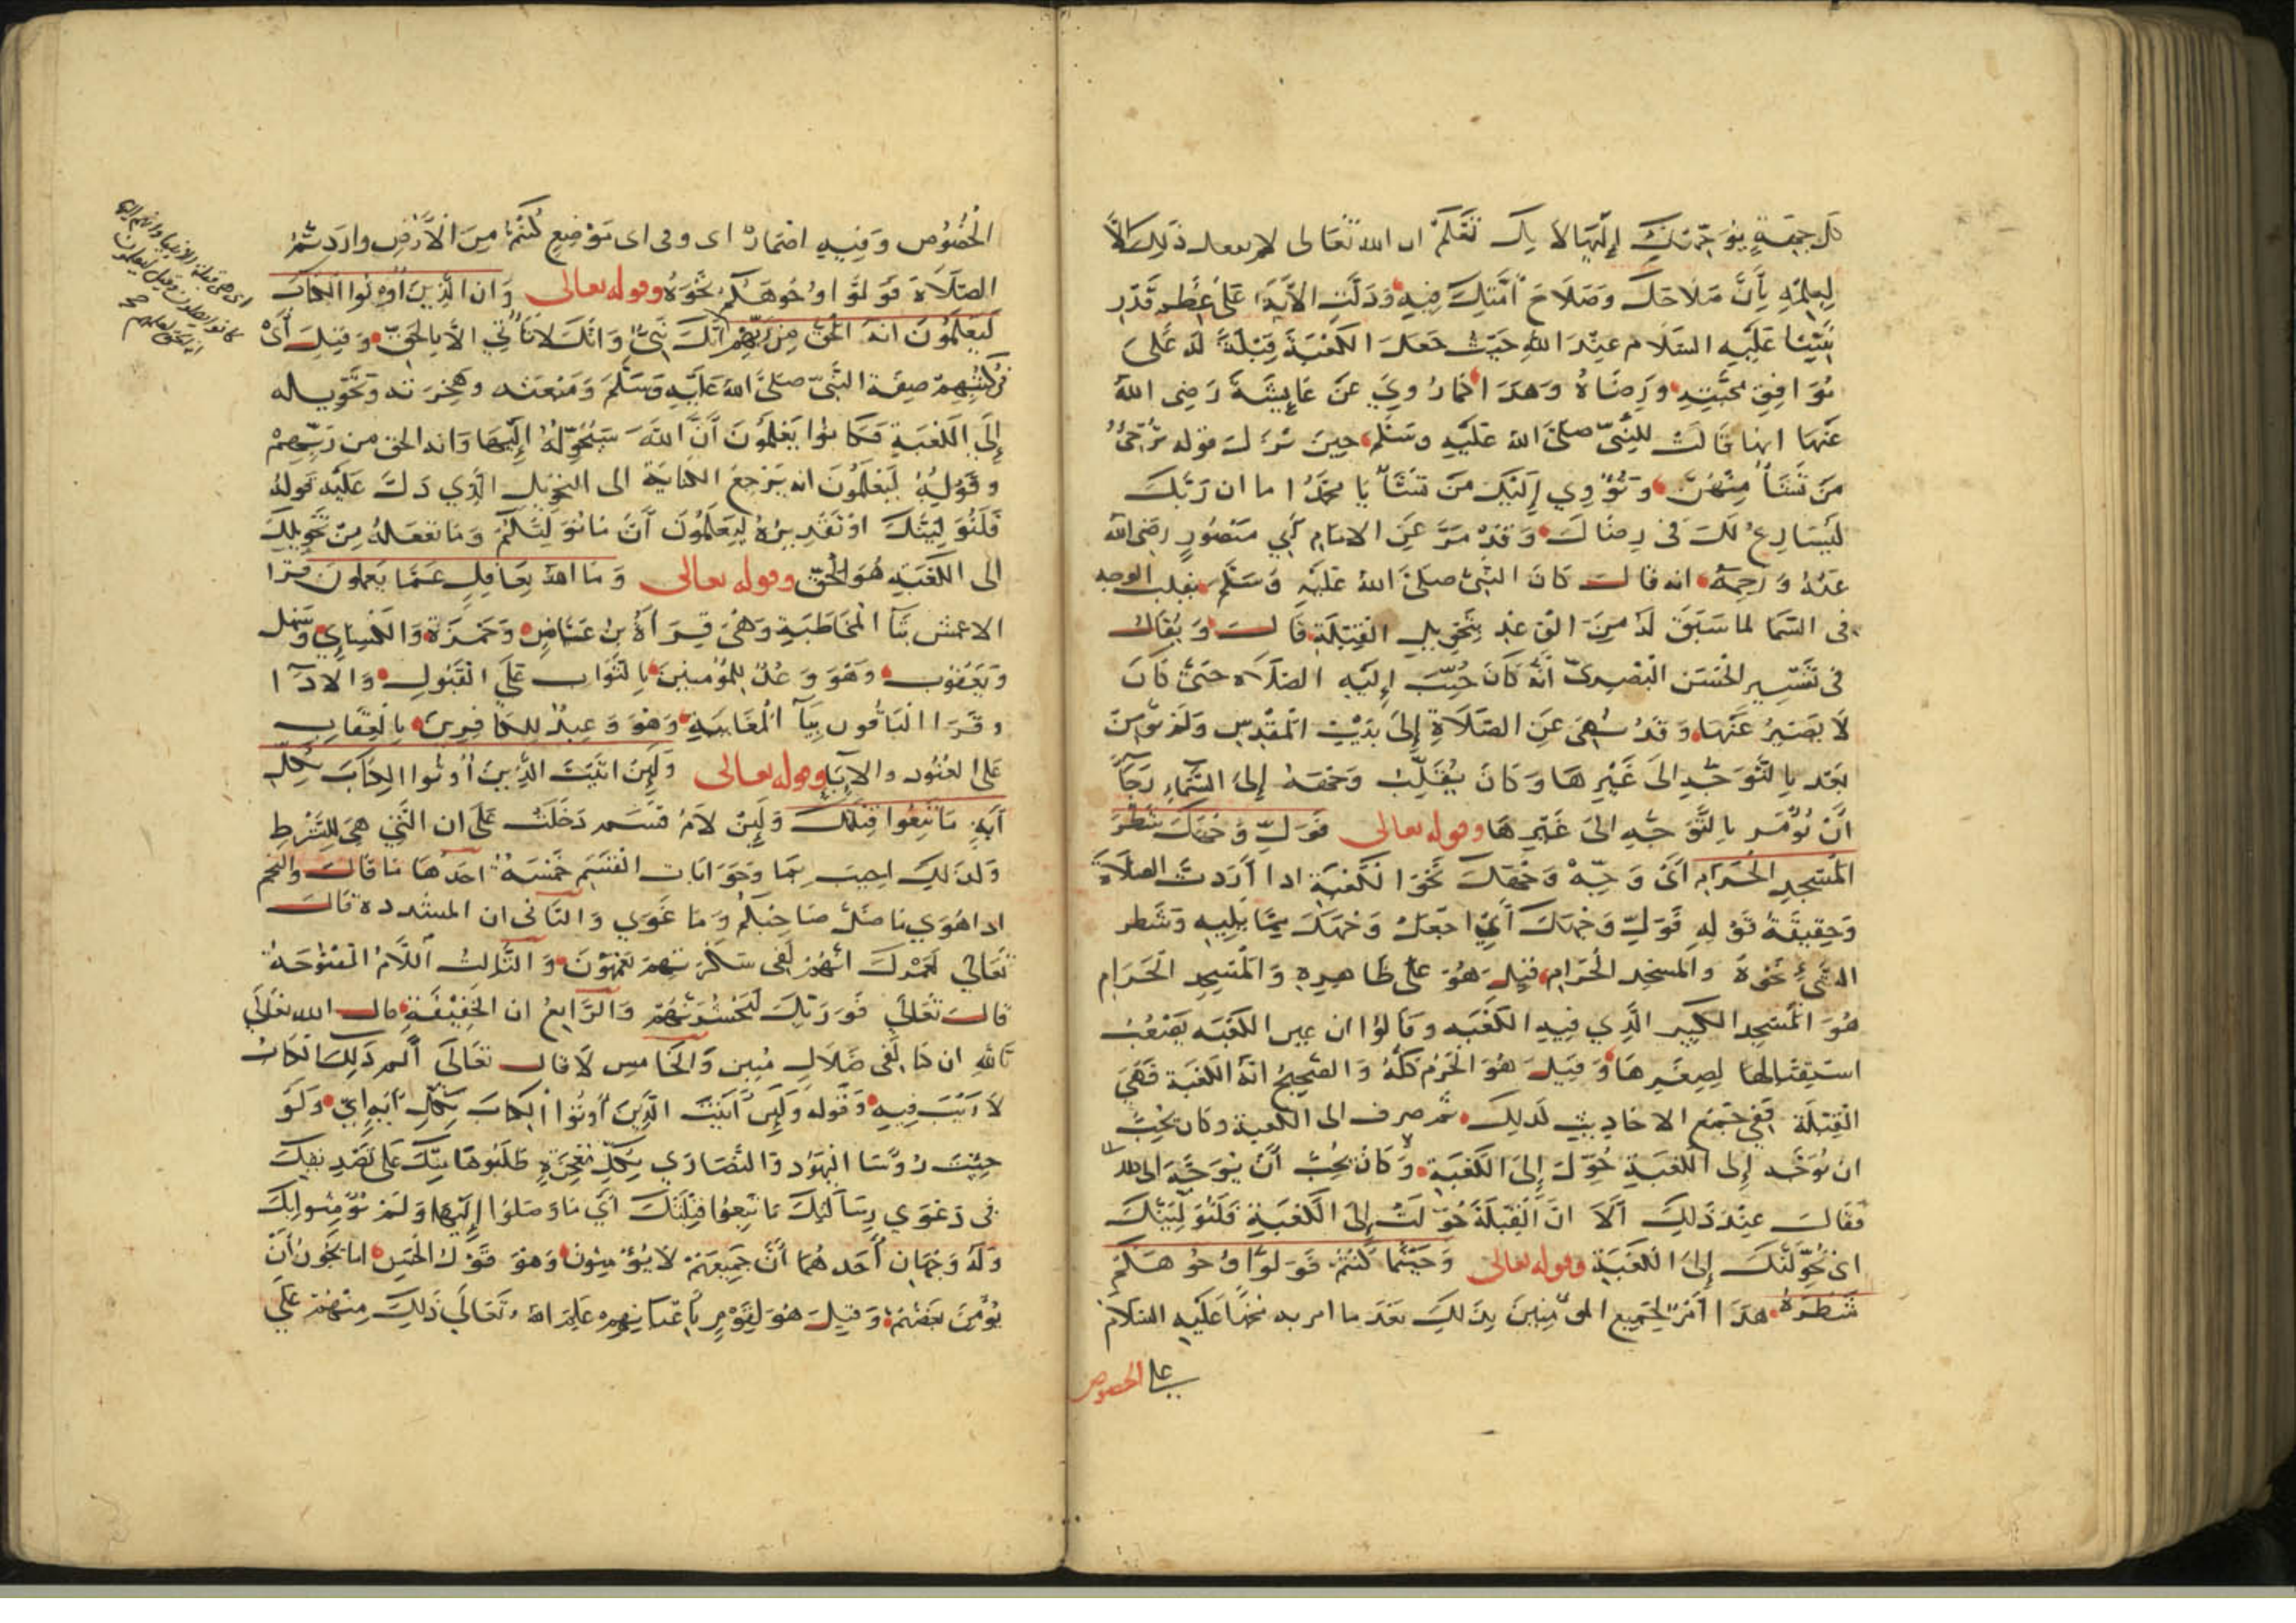 كل جهة يوجهك إليها لا بك تعلم ان الله تعالى لم يفعل ذلك الا
لعلمه بأن صلاحك وصلاح أمتك فيه ودلت الآية على عظم قدر
نبينا عليه السلام عند الله حيث جعل الكعبة قبلة له على
توافق محبته ورضاه وهذا كما روي عن عائشة رضي الله
عنها انها قالت للنبي صلى الله عليه وسلم حين نزل قوله ترجئ
من تشاء منهن وتؤوي إليك من تشاء يا محمد اما ان ربك
ليسارع لك في رضاك وقد مر عن الامام أبي منصور رضي الله
عنه ورحمه انه قال كان النبي صلى الله عليه وسلم يقلب الوجه
في السما لما سبق له من الوعد بتحويل القبلة قال ويقال
في تفسير الحسن البصري أنه كان حبب إليه الصلاه حتى كان
لا يصبر عنها وقد نهي عن الصلاة إلى بيت المقدس ولم يؤمر
بعد بالتوجه الى غيرها وكان يقلب وجهه إلى السماء رجاء
أن يؤمر بالتوجه الى غيرها وقوله تعالى فول وجهك شطر
المسجد الحرام أي وجه وجهك نحو الكعبة اذا أردت الصلاة
وحقيقة قوله فول وجهك أي اجعل وجهك مما يليه وشطر
الشيء نحوه والمسجد الحرام قيل هو على ظاهره والمسجد الحرام
هو المسجد الكبير الذي فيه الكعبه وقالوا ان عين الكعبه يصعب
استقبالها لصغرها وقيل هو الحرم كله والصحيح انه الكعبة فهي
القبلة ففي جميع الاحاديث لذلك ثم صرف الى الكعبة وكان يحب
ان توجه إلى الكعبة حول إلى الكعبة وكان يحب أن يوجه الى
فقال عند ذلك ألا ان القبلة حولت إلى الكعبة فلنولينك
اي نحولنك إلى الكعبة وقوله تعالى وحيثما كنتم فولوا وجوهكم
شطره هذا أمر لجميع المؤمنين بذلك بعد ما امر به محمدا عليه السلام
على الخصوص
الخصوص وفيه اضمار اى وفى اى موضع كنتم من الأرض واردتم
الصلاة فولوا وجوهكم نحوه وقوله تعالى وان الذين أوتوا الكتاب
ليعلمون انه الحق من ربهم أنك نبي وانك لا تأتي الا بالحق وقيل أي
في كتبهم صفة النبي صلى الله عليه وسلم ومبعثه وهجرته وتحويله
إلى الكعبة فكانوا يعلمون أن الله سيحوله إليها وانه الحق من ربهم
وقوله ليعلمون انه يرجع الكناية الى التحويل الذي دل عليه قوله
فلنولينك او تقديره ليعلمون أن ما نولينكم وما نفعله من تحويلك
الى الكعبه هو الحق وقوله تعالى وما الله بغافل عما يعملون قرا
الاعمش بتا المخاطبة وهي قراءة ابن عامر وحمزة والكسائي وسهل
ويعقوب وهو وعد للمؤمنين بالثواب على القبول والادآ
وقرا الباقون بيآ المغايبة وهو وعيد للكافرين بالعقاب
على العنود والاباء وقوله تعالى ولئن اتيت الذين أوتوا الكتاب بكل
آية ما تبعوا قبلتك ولئن لام قسم دخلت على ان التي هي للشرط
ولذلك اجيب بما وجوابات القسم خمسة احدها ما قال والنجم
اذا هوى ما ضل صاحبكم وما غوى والثاني ان المشدده قال
تعالى لعمرك انهم لفى سكرتهم يعمهون والثالث اللام المفتوحة
قال تعالى فوربك لنحشرنهم والرابع ان الخفيفة قال الله تعالى
تالله ان كنا لفى ضلال مبين والخامس لا قال تعالى ألم ذلك الكتاب
لا ريب فيه وقوله ولئن أتيت الذين أوتوا الكتاب بكل آية اي ولو
جئت رؤسا اليهود والنصارى بكل معجزة طلبوها منك على تصديقك
في دعوى رسالتك ما تبعوا قبلتك أي ما وصلوا إليها ولم يؤمنوا بك
وله وجهان أحدهما أن جميعهم لا يؤمنون وهو قول الحسن اما يجوز أن
يؤمن بعضهم وقيل هو لقوم باعيانهم علم الله تعالى ذلك منهم على